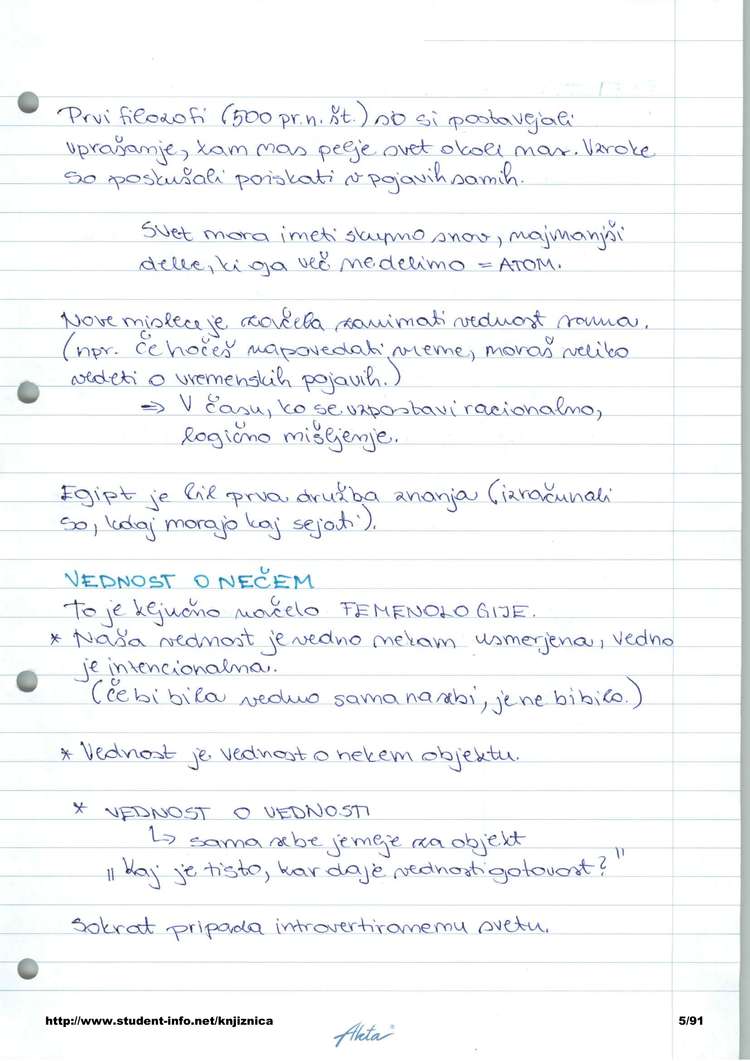 Prvi filozofi (500 pr. n. št.) so si postavljali
vprašanje, kam nas pelje svet okoli nas. Vzroke
so poskušali poiskati v pojavih samih.
Svet mora imeti skupno snov, najmanjši
delec, ki ga več ne delimo = ATOM.
Nove mislece je začela zanimati vednost sama.
(npr. Če hočeš napovedati vreme, moraš veliko
vedeti o vremenskih pojavih.)
⇒ V času, ko se vzpostavi racionalno,
logično mišljenje.
Egipt je bil prva družba znanja (izračunali
so, kdaj morajo kaj sejati).
VEDNOST O NEČEM
To je ključno načelo FEMENOLOGIJE.
* Naša vednost je vedno nekam usmerjena, vedno
je intencionalna.
(Če bi bila vedno sama na sebi, je ne bi bilo.)
* Vednost je vednost o nekem objektu.
* VEDNOST O VEDNOSTI
↳ sama sebe jemlje za objekt
"Kaj je tisto, kar daje vednosti gotovost?"
Sokrat pripada introvertiranemu svetu.
http://www.student-info.net/knjiznica
5/91
Akta